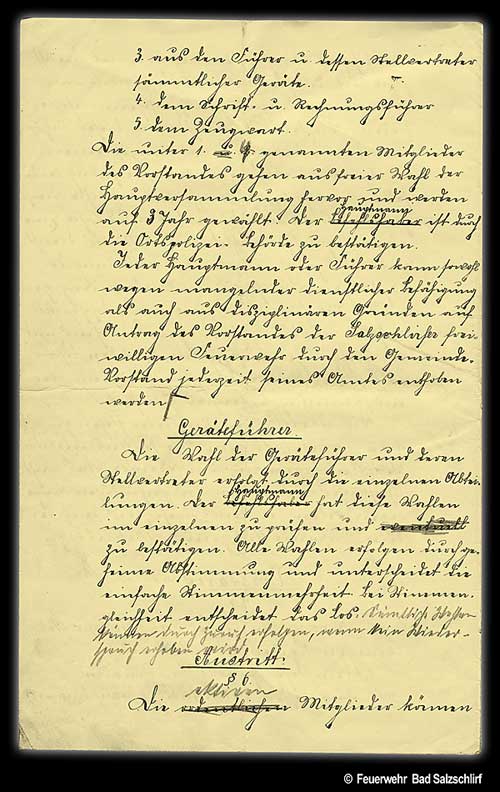 3. aus den Führer u. dessen Stellvertreter
sämmtlicher Geräte.
4. dem Schrift- u. Rechnungsführer
5. dem Zeugwart.
Die unter 1. genannten Mitglieder
des Vorstandes gehen aus freier Wahl der
Hauptversammlung hervor und werden
auf 3 Jahr gewählt. Der
Hauptmann
Befehlshaber ist durch
die Ortspolizei-Behörde zu bestätigen.
Jeder Hauptmann oder Führer kann sowohl
wegen mangelnder dienstlicher Befähigung
als auch aus disziplinären Gründen auf
Antrag des Vorstandes der Salzschlirfer frei-
willigen Feuerwehr durch den Gemeinde-
Vorstand jederzeit seines Amtes enthoben
werden
Geräteführer.
Die Wahl der Geräteführer und deren
Stellvertreter erfolgt durch die einzelnen Abtei-
lungen. Der
Hauptmann
Befehlshaber hat diese Wahlen
im einzelnen zu prüfen und eventuell
zu bestätigen. Alle Wahlen erfolgen durch ge-
heime Abstimmung und unterscheidet die
einfache Stimmenmehrheit bei Stimmen-
gleichheit entscheidet das Los. Sämtliche
durch Zuruf erfolgen, wenn kein Wieder-
spruch erhoben wird
Austritt.
§ 6.
aktiven
Die ordentlichen Mitglieder können
© Feuerwehr Bad Salzschlirf